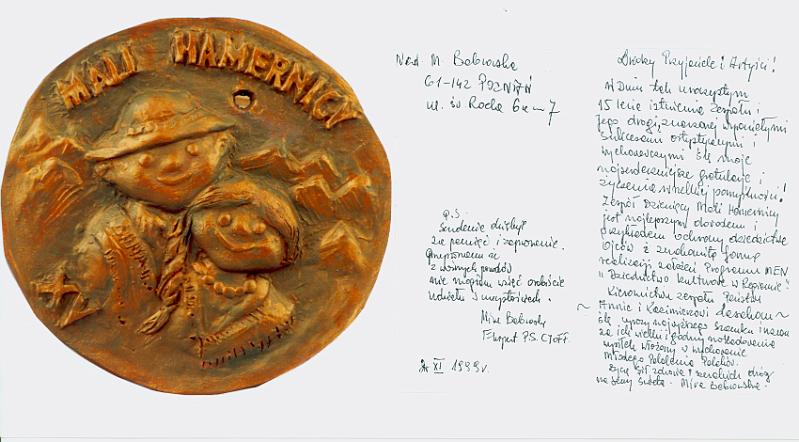 MALI HAMERNICY
XV
Nad. M. Bobrowska
61-142 POZNAŃ
ul. św Rocha 6a m 7
P.S.
Serdecznie dziękuję
za pamięć i zaproszenie.
z ważnych powodów
nie mogłam wziąć osobiście
udziału w uroczystościach.
Mira Bobrowska
Ekspert P.S. CIOFF.
XI 1999r.
Drodzy Przyjaciele i Artyści!
W Dniu tak uroczystym
15 lecia istnienia Zespołu i
jego drogi znaczonej wspaniałymi
sukcesami artystycznymi i
wychowawczymi ślę moje
najserdeczniejsze gratulacje i
życzenia wszelkiej pomyślności!
Zespół Dziecięcy Mali Hamernicy
jest najlepszym dowodem i
przykładem ochrony dziedzictwa
Ojców i znakomitą formą
realizacji założeń Programu MEN
"Dziedzictwo Kulturowe w Regionie".
Kierownictwu zespołu Państwu
~ Annie i Kazimierzowi Lassakom ~
ślę wyrazy najwyższego szacunku i uznania
za ich wielki i godny naśladowania
wysiłek włożony w wychowanie
Młodego Pokolenia Polaków.
Życzę sił zdrowia i szerokich dróg
na sceny świata. Mira Bobrowska.